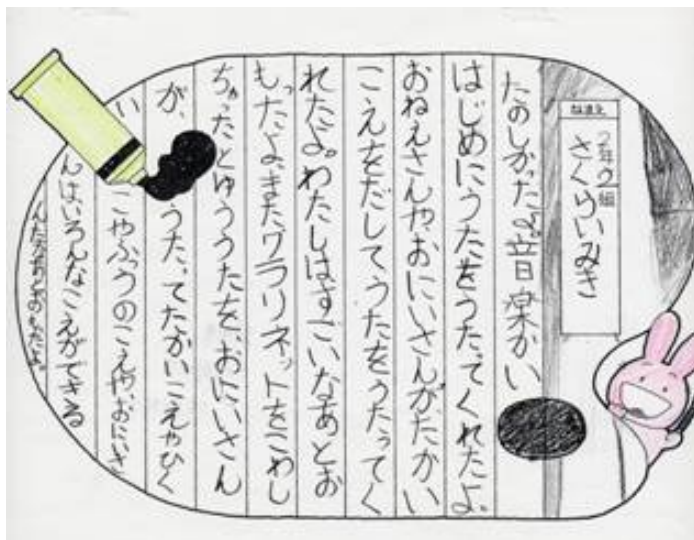 なまえ
2年2組
さくらいみき
たのしかったよ。音楽かい
はじめにうたをうたってくれたよ。
おねえさんや、おにいさんがたかい
こえをだしてうたをうたってく
れたよ。わたしはすごいなあとお
もったよ。またクラリネットをこわし
ちゃったとゆううたを、おにいさん
が、うたってたかいこえやひく
いこやふうのこえや、おにいさ
んはいろんなこえができる
んだなあとおもったよ。